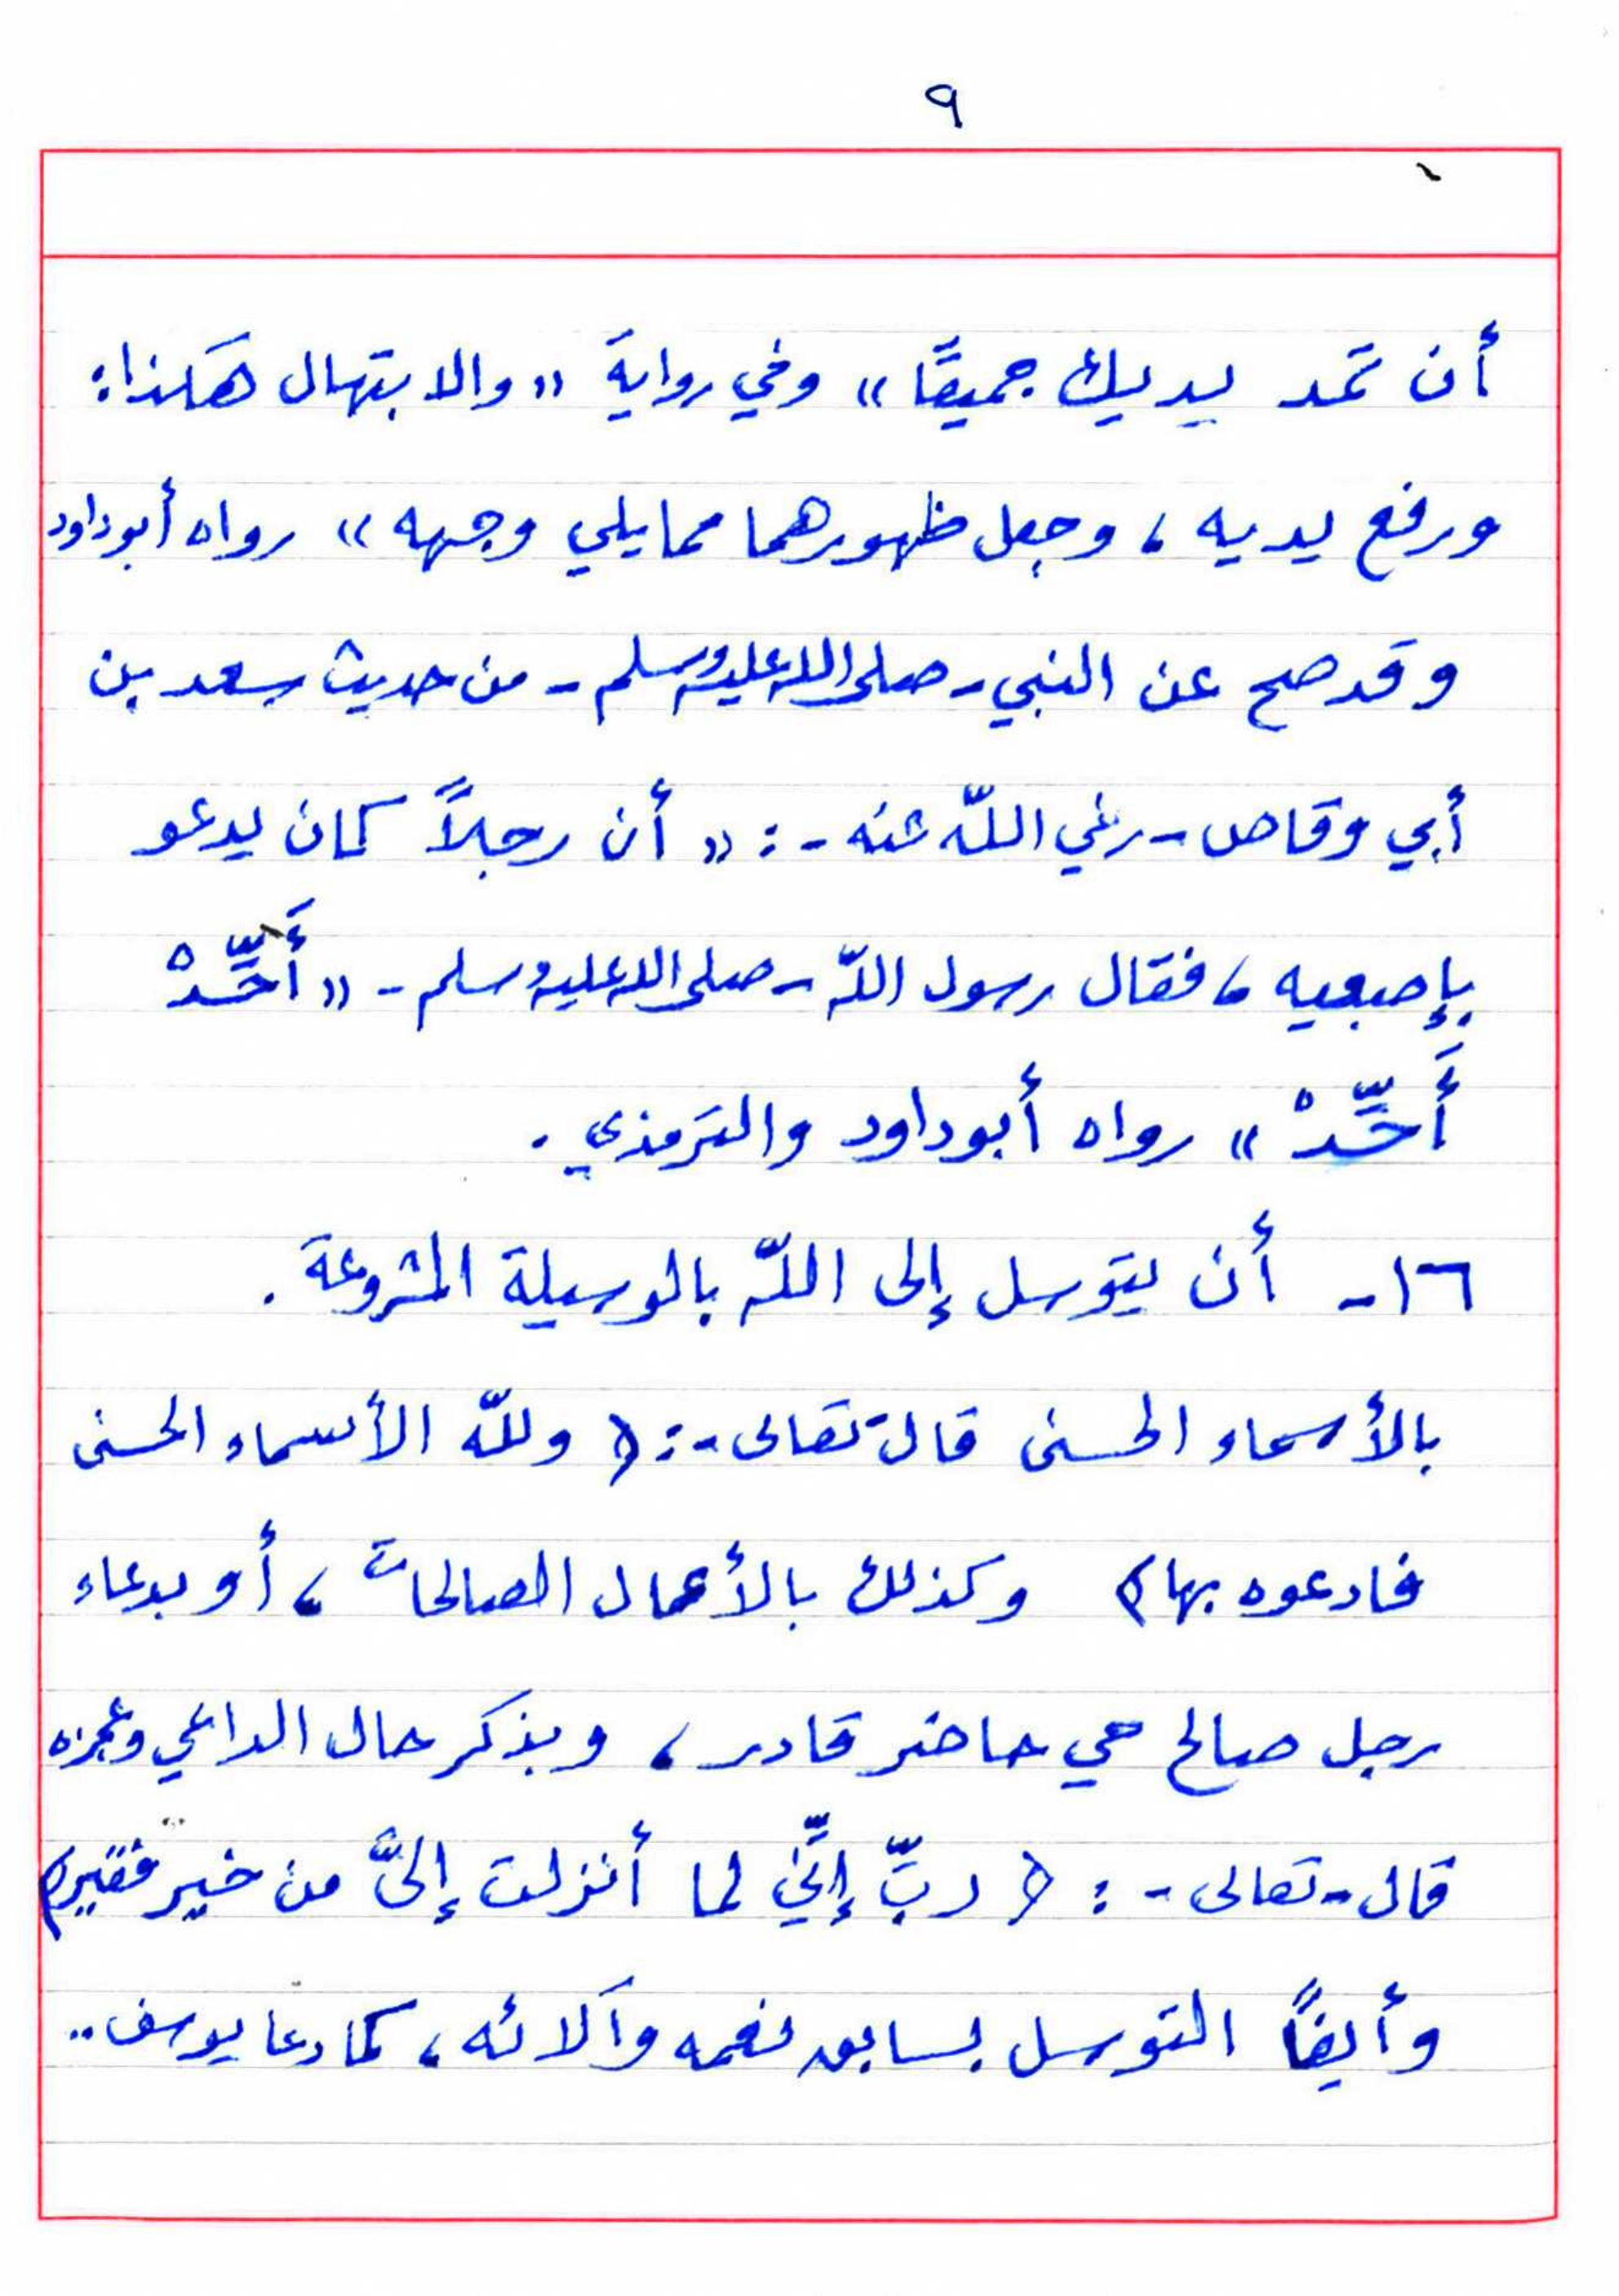 ٩
أن تمد يديك جميعًا» وفي رواية «والابتهال هَكذا:
ورفع يديه، وجعل ظهورهما مما يلي وجهه» رواه أبو داود
وقد صح عن النبي - صلى الله عليه وسلم - من حديث سعد بن
أبي وقاص - رضي اللّه عنه - : «أن رجلاً كان يدعو
بإصبعيه، فقال رسول اللّه - صلى الله عليه وسلم - «أَحِّدْ
أَحِّدْ» رواه أبو داود والترمذي.
١٦- أن يتوسل إلى اللّه بالوسيلة المشروعة.
بالأسماء الحسنى قال تعالى - : ﴿وللّه الأسماء الحسنى
فادعوه بها﴾ وكذلك بالأعمال الصالحات، أو بدعاء
رجل صالح حي حاضر قادر، وبذكر حال الداعي وعجزه
قال - تعالى - : ﴿ربِّ إنِّي لما أنزلت إليَّ من خير فقير﴾
وأيضًا التوسل بسابق نعمه وآلائه، كما دعا يوسف..